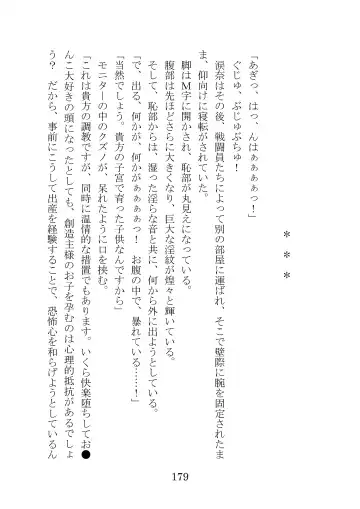 ＊＊＊
「あぎっ、はっ、んはぁぁぁぁっ！」
ぐじゅ、ぶじゅぶちゅ！
涙奈はその後、戦闘員たちによって別の部屋に運ばれ、そこで壁際に腕を固定されたま
ま、仰向けに寝転がされていた。
脚はM字に開かれ、恥部が丸見えになっている。
腹部は先ほどさらに大きくなり、巨大な淫紋が煌々と輝いている。
そして、恥部からは、湿った淫らな音と共に、何から外に出ようとしている。
「で、出る、何かが、何かがぁぁぁぁっ！　お腹の中で、暴れている……！」
「当然でしょう。貴方の子宮で育った子供なんですから」
モニターの中のクズノが、呆れたように口を挟む。
「これは貴方の調教ですが、同時に温情的な措置でもあります。いくら快楽堕ちしてお●
んこ大好きの頭になったとしても、創造主様のお子を孕むのは心理的抵抗があるでしょ
う？　だから、事前にこうして出産を経験することで、恐怖心を和らげようとしているん
179